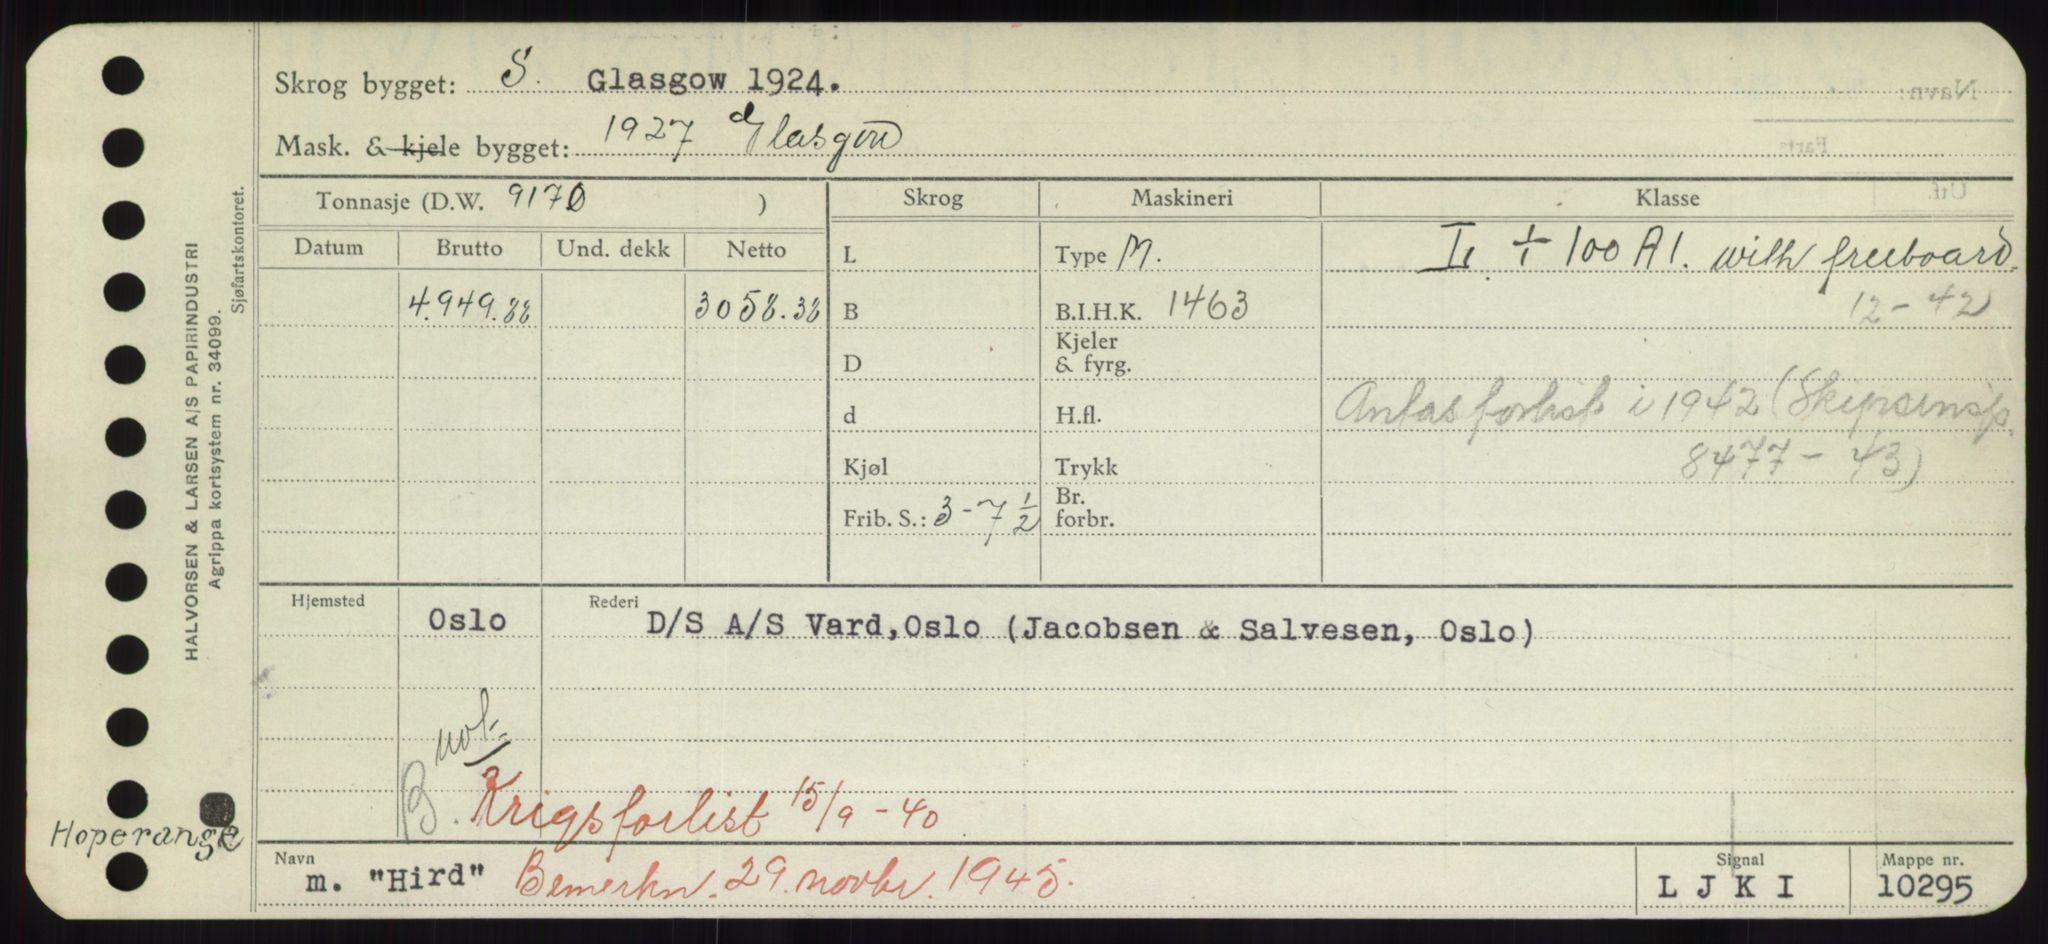 Skrog bygget: S. Glasgow 1924.
Mask. & kjele bygget: 1927 Glasgow
Tonnasje (D.W. 9170 )
Skrog
Maskineri
Klasse
Datum
Brutto
Und. dekk
Netto
L
Type M.
÷ 100 A1. with freeboard.
4.949.88
3058.38
B
B.I.H.K. 1463
12-42
D
Kjeler
& fyrg.
d
H.fl.
Antas forlist i 1942 (Skipsinsp.
Kjøl
Trykk
8477-43)
Frib. S.: 3-7 1/2
Br.
forbr.
Hjemsted
Oslo
Rederi
D/S A/S Vard, Oslo (Jacobsen & Salvesen, Oslo)
not.
B. Krigsforlist 15/9-40
Hoperange
Navn
m. "Hird" Bemerkn. 29. novbr. 1945.
Signal
L J K I
Mappe nr.
10295
HALVORSEN & LARSEN A/S PAPIRINDUSTRI
Agrippa kortsystem nr. 34099.
Sjøfartskontoret.
Navn:
Farts
Utf.